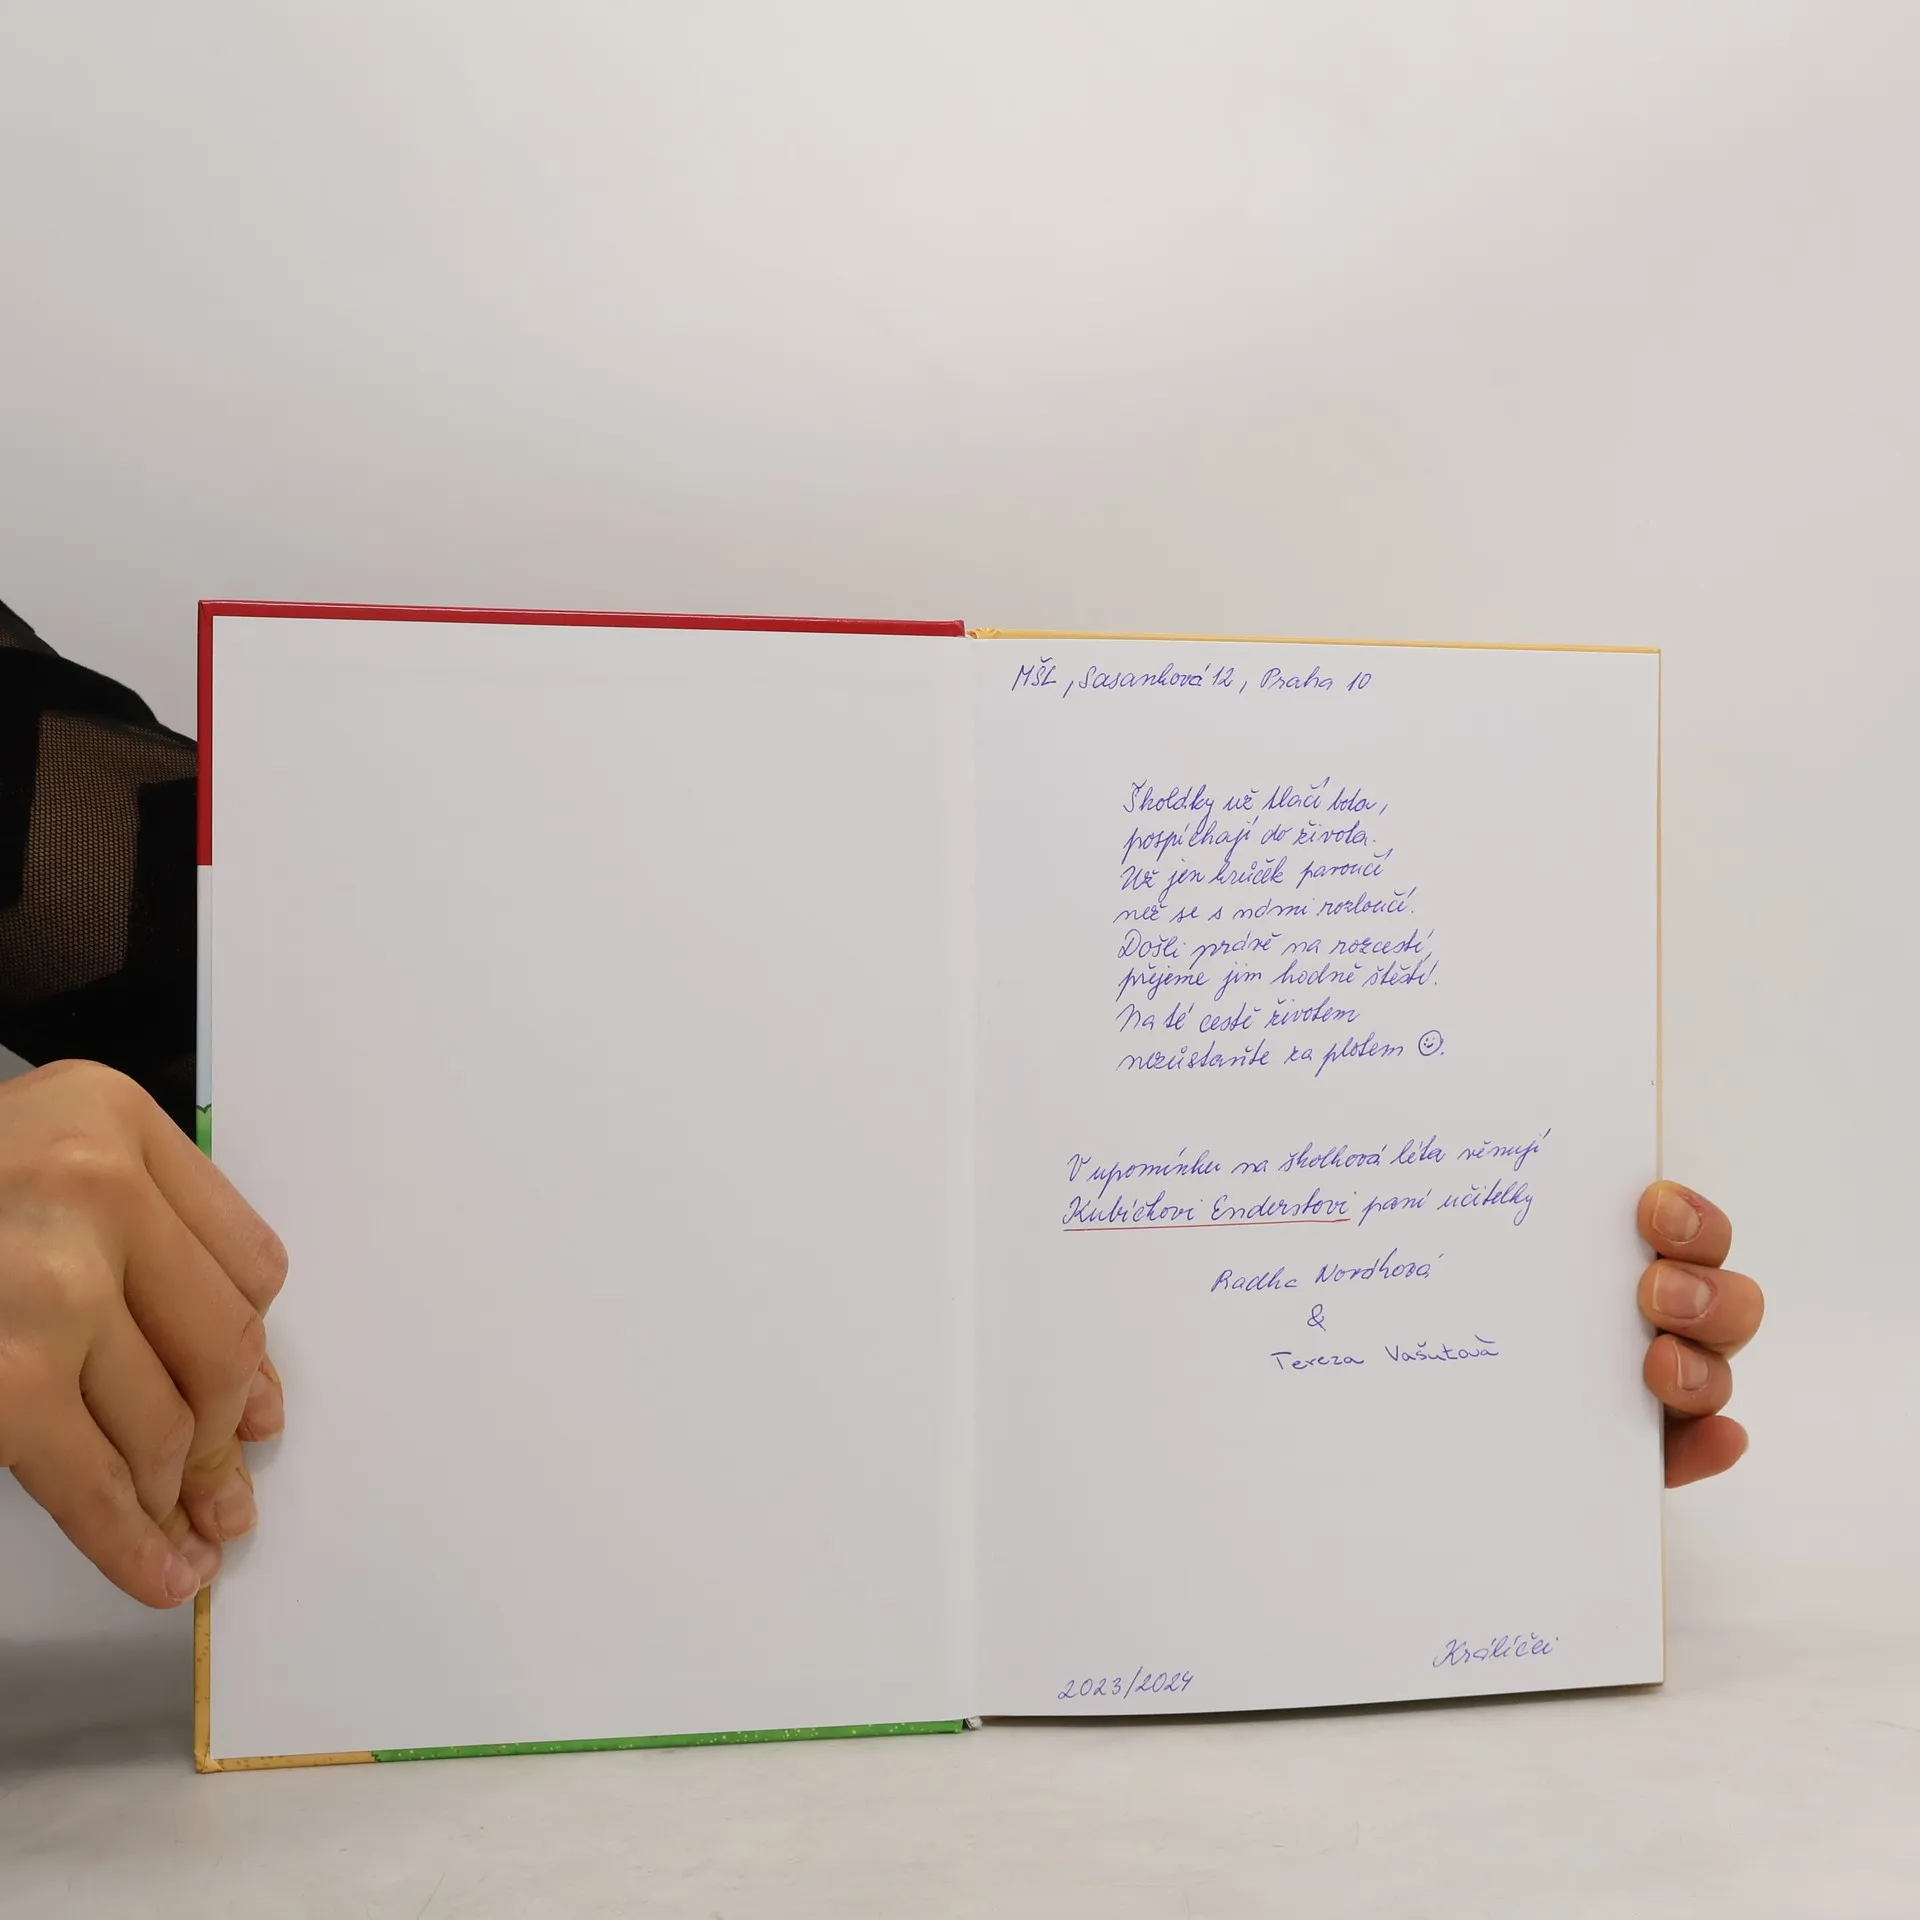 MŠL, Sasanková 12, Praha 10
Školáky už tlačí bota,
pospíchají do života.
Už jen krůček paroučí
než se s námi rozloučí.
Došli právě na rozcestí,
přejeme jim hodně štěstí.
Na té cestě životem
nezůstaňte za plotem ☺.
V upomínku na školková léta věnují
Kubíčkovi Enderstovi paní učitelky
Radka Nováková
&
Tereza Vašutová
Králíčci
2023/2024